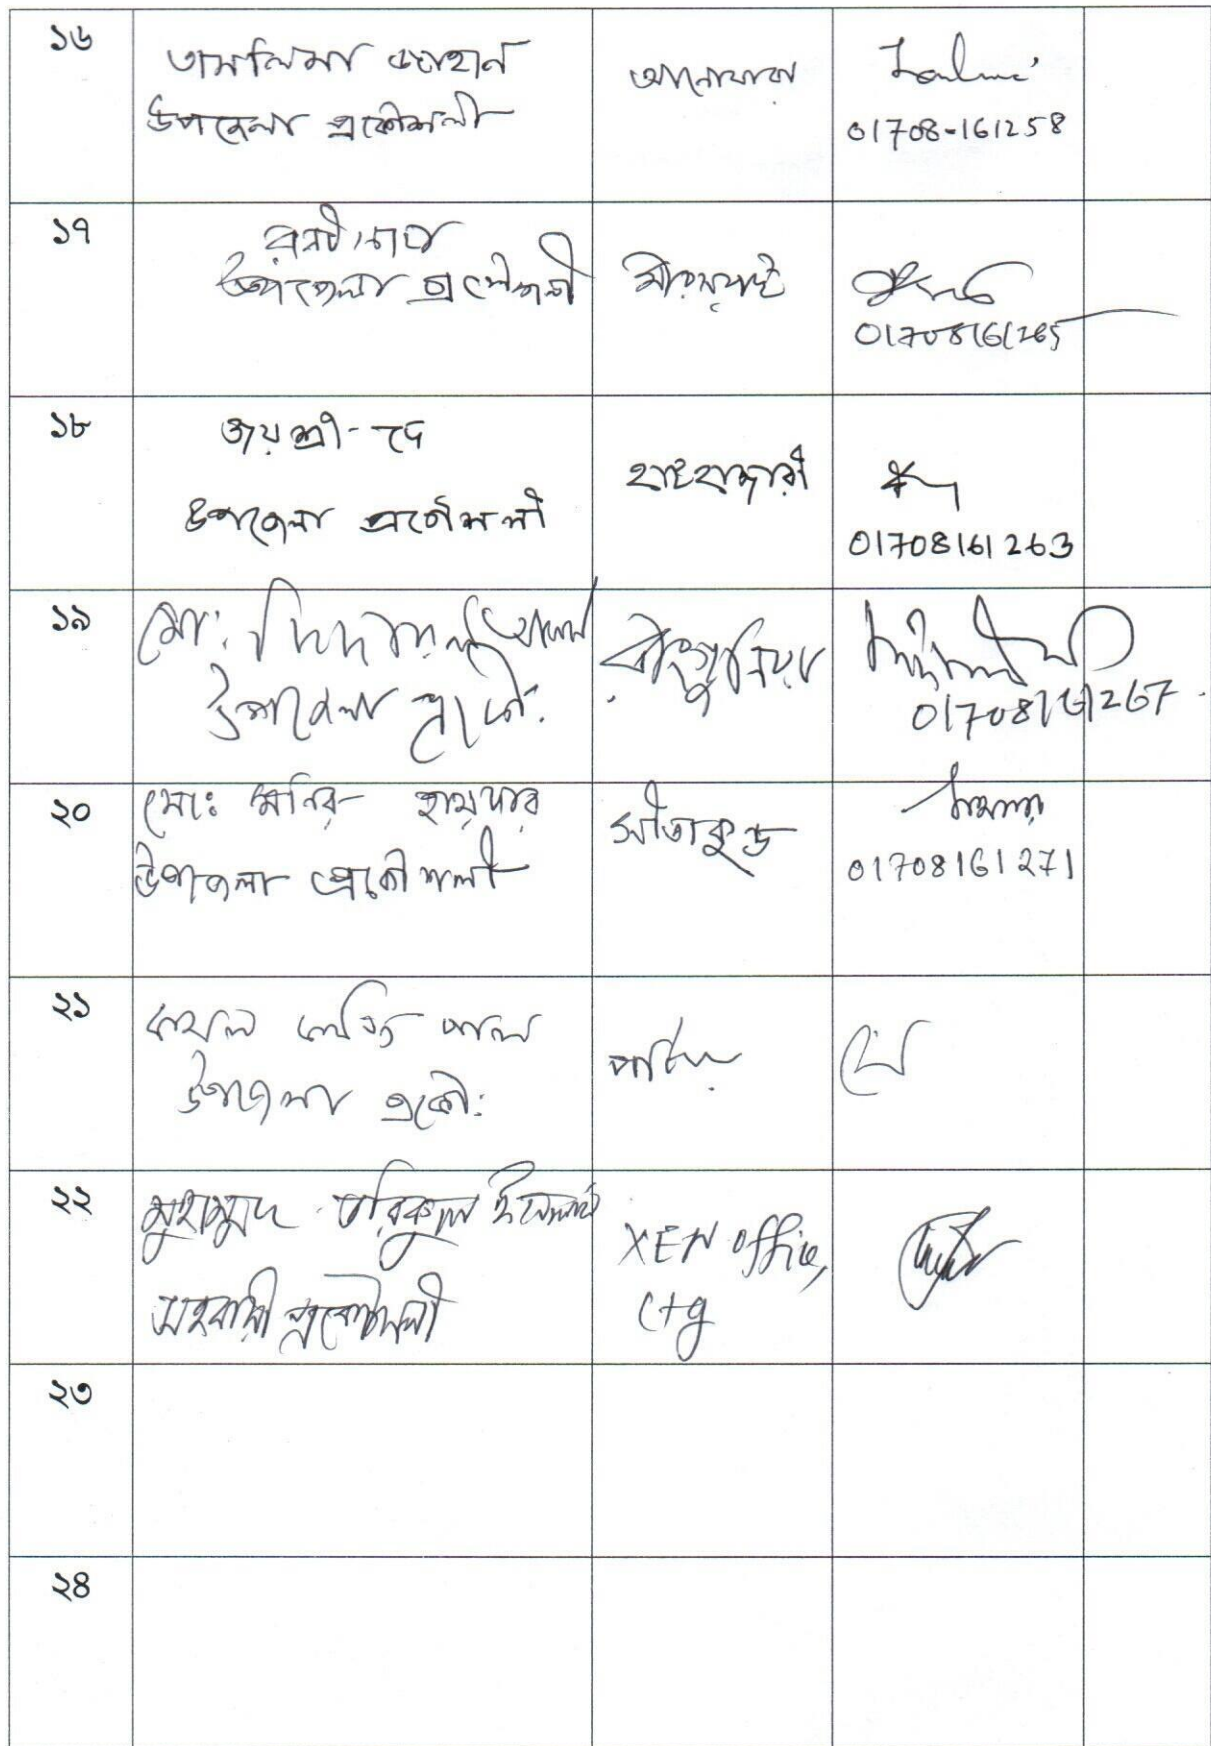 ১৬
তাসলিমা জাহান
উপজেলা প্রকৌশলী
আনোয়ারা
01708-161258
১৭
উপজেলা প্রকৌশলী
মীরসরাই
01708161265
১৮
জয়শ্রী দে
উপজেলা প্রকৌশলী
হাটহাজারী
01708161263
১৯
মো: দিদারুল আলম
উপজেলা প্রকৌ:
রাঙ্গুনিয়া
01708161267
২০
মোঃ মনির হায়দার
উপজেলা প্রকৌশলী
সীতাকুন্ড
01708161271
২১
পাল
উপজেলা প্রকৌ:
পটিয়া
২২
মুহাম্মদ তরিকুল ইসলাম
সহকারী প্রকৌশলী
XEN office,
Ctg
২৩
২৪